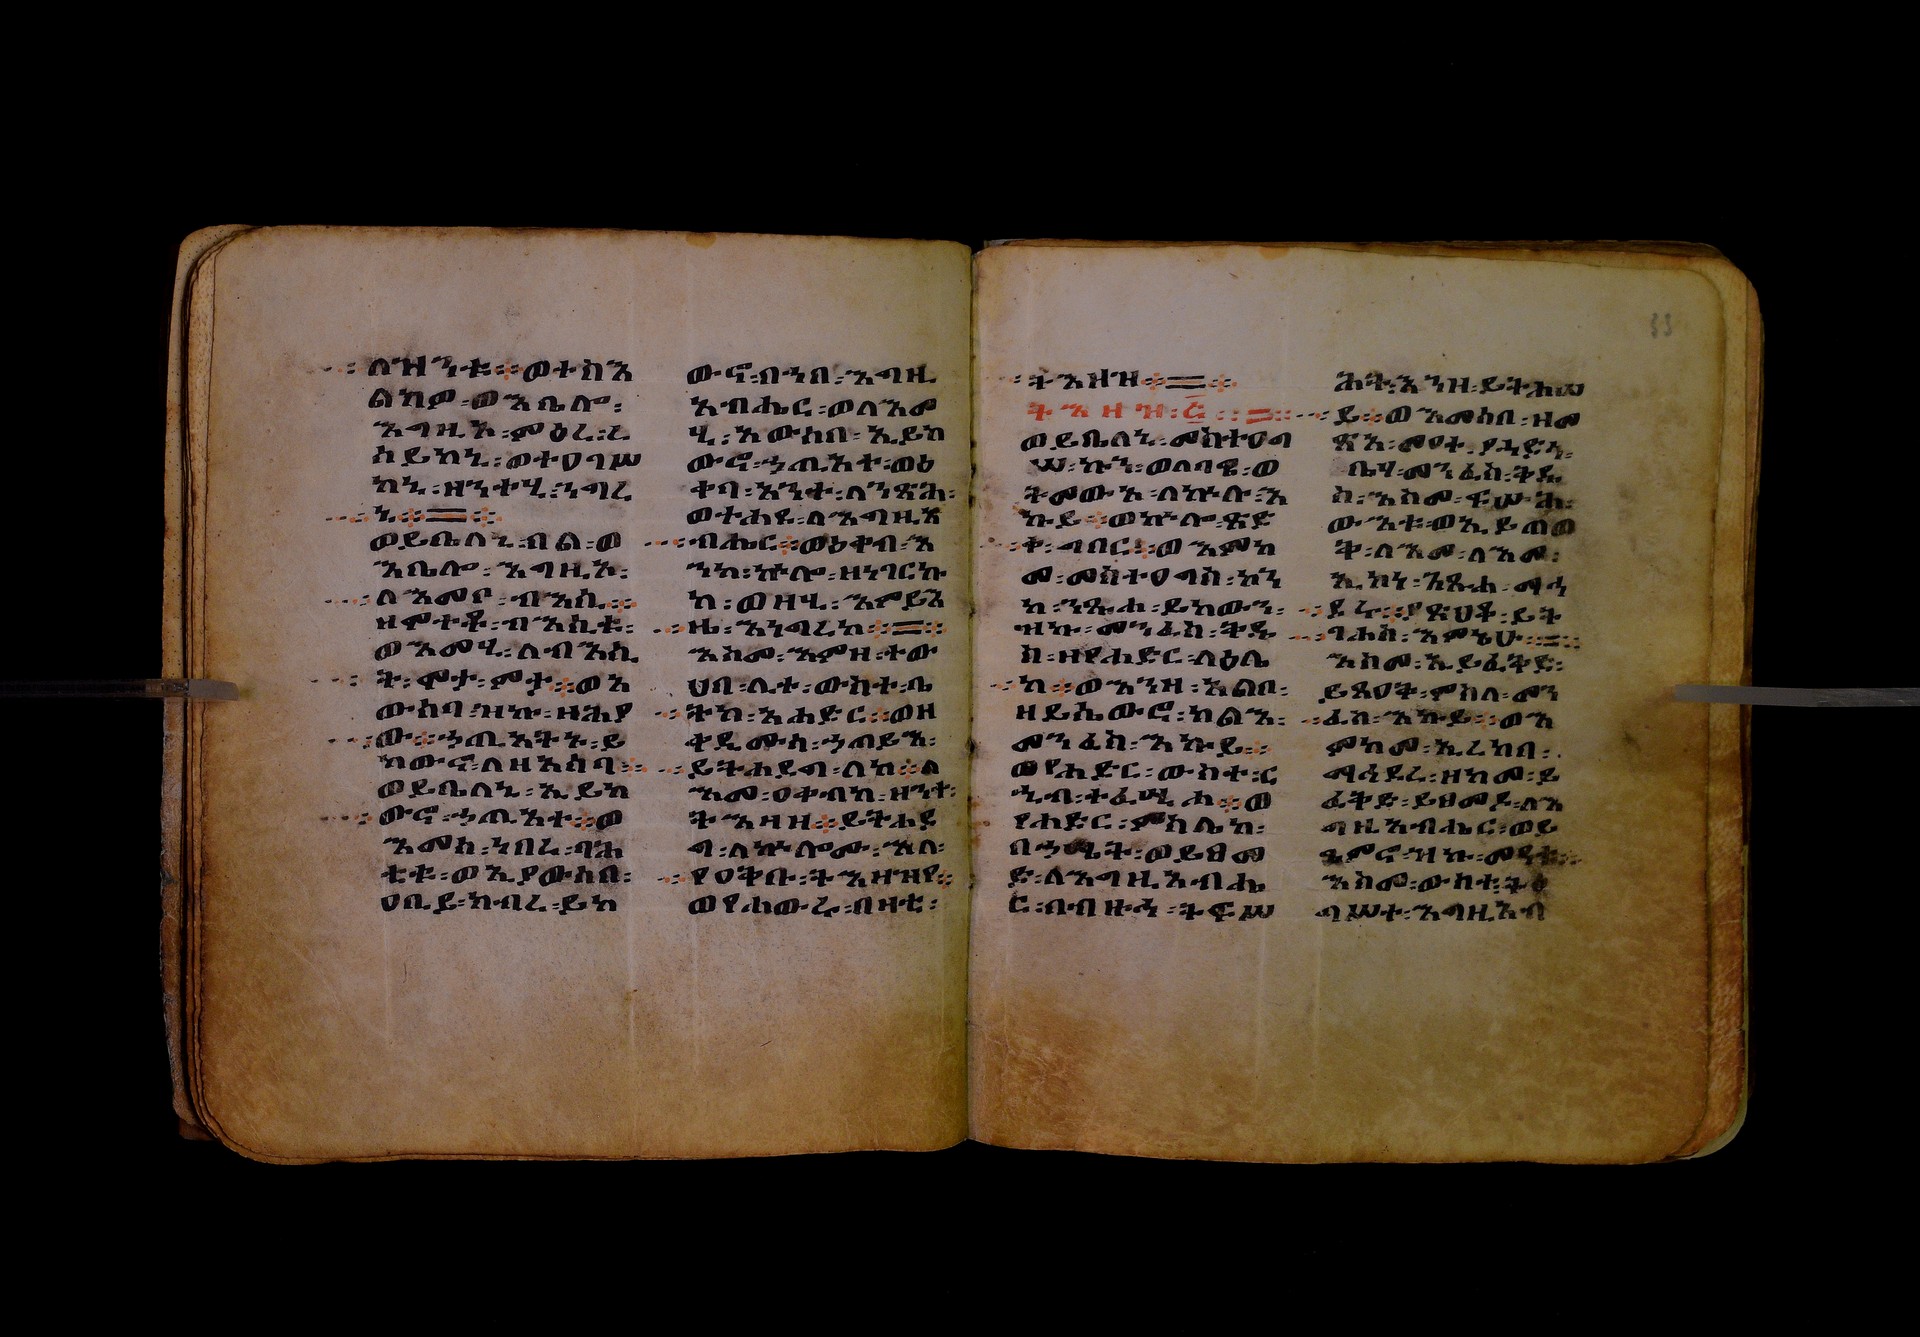 ለዝንቱ።ወተስእ
ልክዎ፡ወእቤሎ፡
እግዚእ፡ምዕረ፡ረ
ሰይከኒ፡ወተዐገሥ
ከኒ፡ዘንተሂ፡ንግረ
ኒ።
ወይቤለኒ፡በል፡ወ
እቤሎ፡እግዚእ፡
ለእመቦ፡ብእሲ።
ዘሞተቶ፡ብእሲቱ፡
ወእመሂ፡ለብእሲ
ት፡ምታ፡ሞተ።ወአ
ውሰባ፡ዝኩ፡ዘሕያ
ው።ኃጢአትኑ፡ይ
ከውኖ፡ለዘአስባ።
ወይቤለኒ፡ኢይከ
ውኖ፡ኃጢአተ።ወ
እመሰ፡ነበረ፡ባሕ
ቲቱ፡ወኢያውሰበ፡
ዐቢይ፡ክብረ፡ይከ
ውኖ፡በኀበ፡እግዚ
አብሔር፡ወለእመ
ሂ፡አውሰበ፡ኢይከ
ውኖ፡ኃጢአተ፡ወዕ
ቀባ፡እንተ፡ለንጽሕ፡
ወተሐዩ፡ለእግዚአ
ብሔር።ወዕቀብ፡እ
ንከ፡ኵሎ፡ዘነገርኩ
ከ፡ወዘሂ፡እምይእ
ዜ፡እነግረከ።
እስመ፡እምዘ፡ተው
ህበ፡ሊተ፡ውስተ፡ቤ
ትከ፡አሐድር።ወዘ
ቀዲሙሰ፡ኃጢይእ፡
ይትሐደግ፡ለከ።ለ
እመ፡ዐቀብከ፡ዘንተ፡
ትእዛዝ።ይትሐደ
ግ፡ለኵሎሙ፡እለ፡
የዐቅቡ፡ትእዛዝየ።
ወየሐውሩ፡በዛቲ፡
ትእዛዝ።
ትእዛዝ፡፭።
ወይቤለኒ፡መስተዐግ
ሠ፡ኩን፡ወለባዌ፡ወ
ትመውእ፡ለኵሉ፡እ
ኩይ።ወኵሎ፡ጽድ
ቀ፡ግበር።ወእምከ
መ፡መስተዐግስ፡ከን
ከ፡ንጹሐ፡ይከውን፡
ዝኩ፡መንፈስ፡ቅዱ
ስ፡ዘየሐድር፡ላዕሌ
ከ።ወእንዘ፡አልቦ፡
ዘይጼውሮ፡ካልእ፡
መንፈስ፡እኩይ።
ወየሐድር፡ውስተ፡ር
ኂብ፡ተፈሢሖ።ወ
የሐድር፡ምስሌከ፡
በኃሤት፡ወይፀመ
ድ፡ለእግዚአብሔ
ር፡በብዙኅ፡ትፍሥ
ሕት፡እንዘ፡ይትሐሠ
ይ።ወእመሰቦ፡ዘመ
ጽአ፡መዐተ
ቤሃ፡መንፈስ፡ቅዱ
ስ፡እስመ፡ፍሡሕ፡
ውእቱ፡ወኢይጠወ
ቅ፡ለእመ፡ለእመ፡
ኢኮነ፡ንጹሐ፡ማኅ
ደሩ።ያጽህቆ፡ይት
ገሐስ፡እምኔሁ።
እስመ፡ኢይፈቅድ፡
ይጸዐቅ፡ምስለ፡መን
ፈስ፡እኩይ።ወእ
ምከመ፡ኢረከበ፡
ማኅደረ፡ዘከመ፡ይ
ፈቅድ፡ይፀመድ፡ለእ
ግዚአብሔር፡ወይ
ዝኩ
እስመ፡ውስተ፡ትዕ
ግሥተ፡እግዚአብ